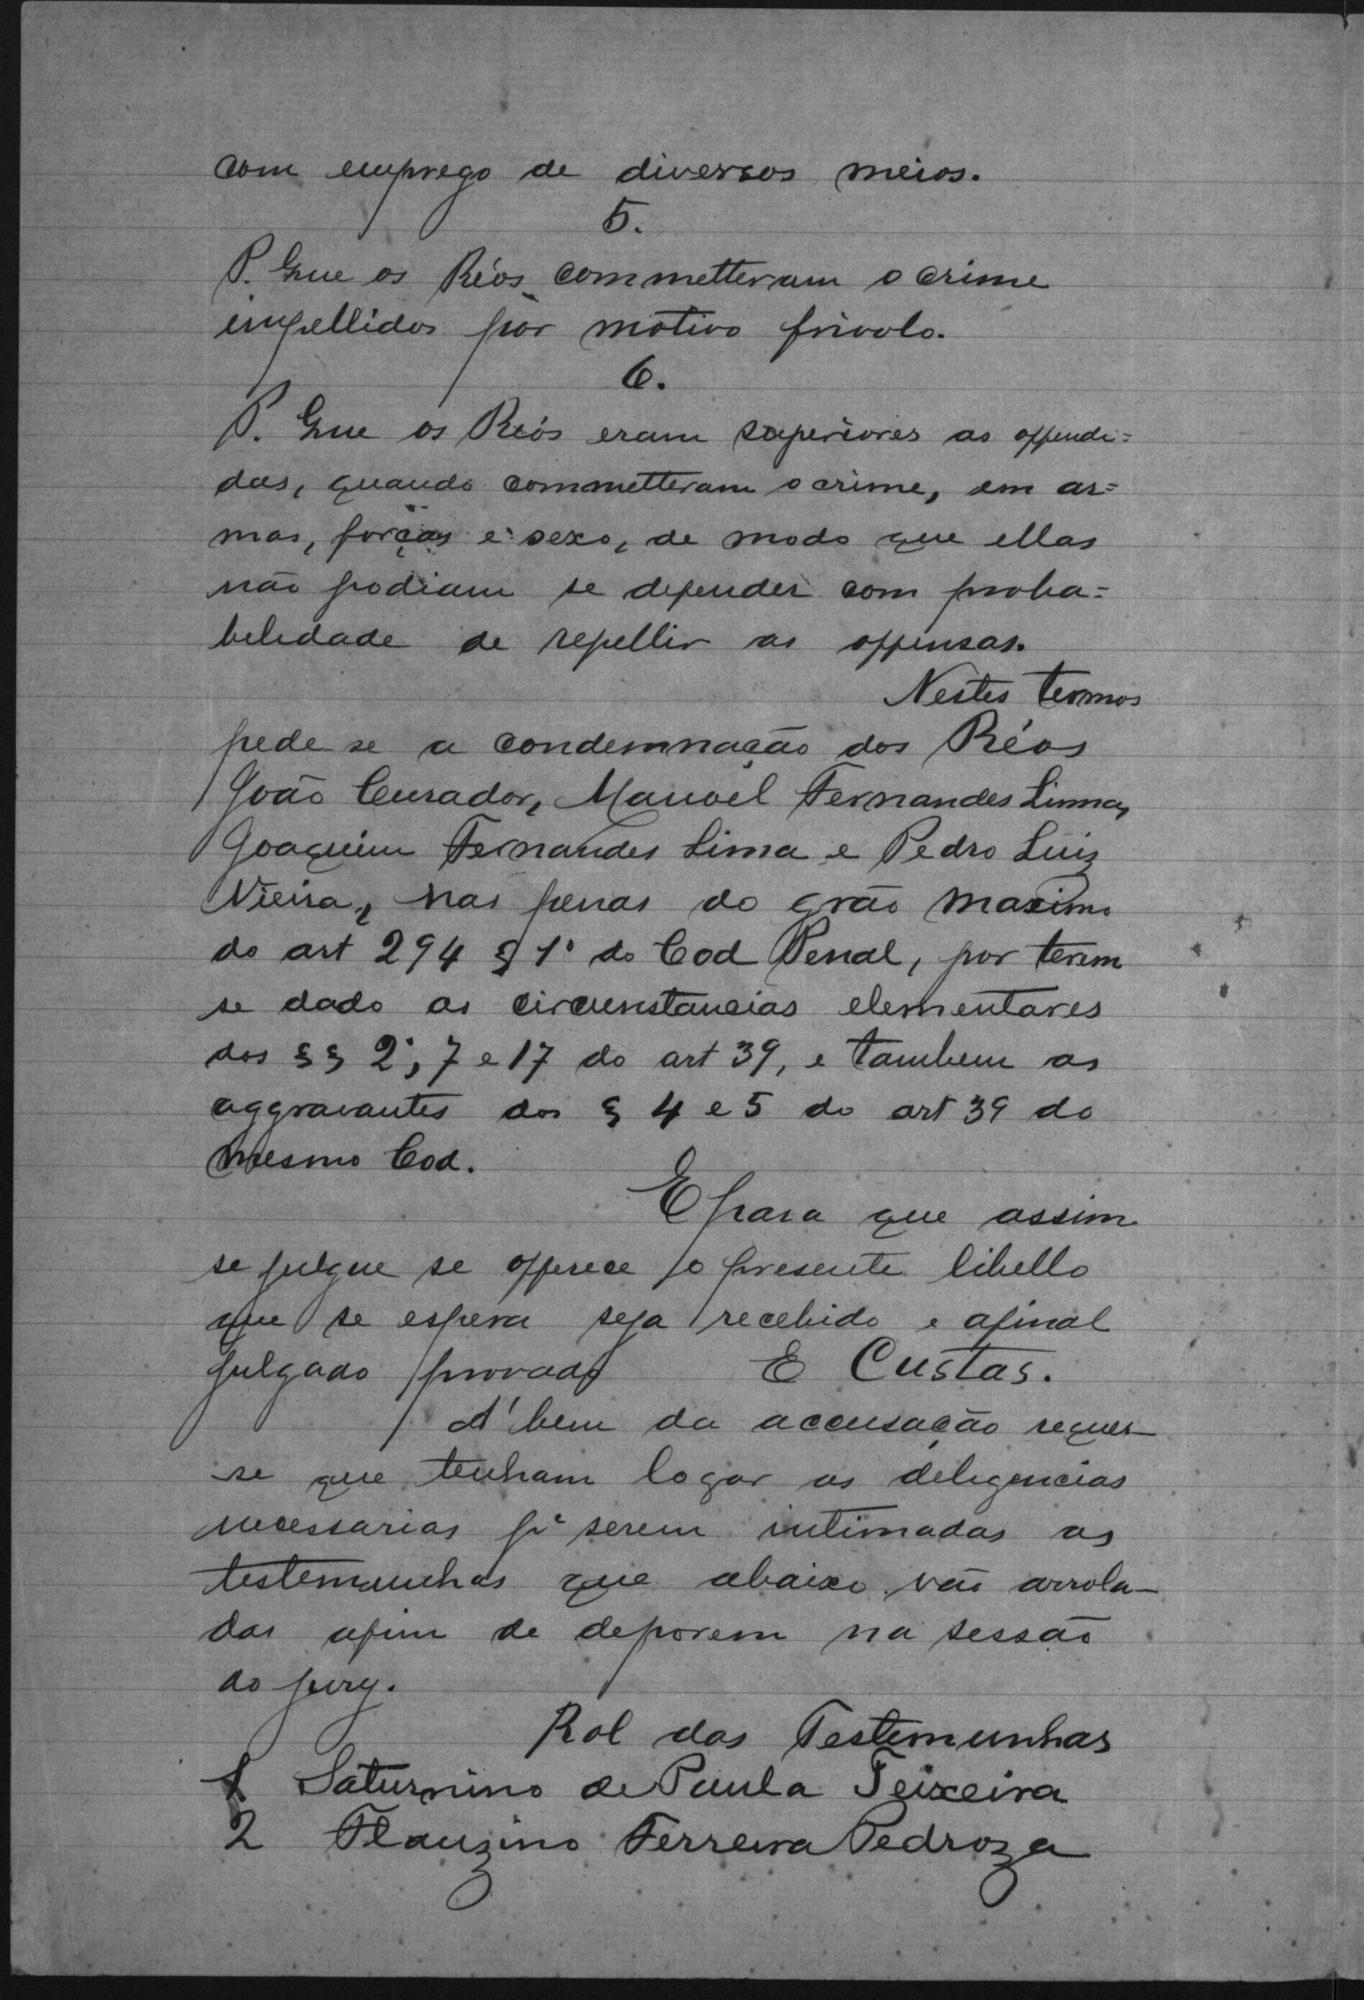 com emprego de diversos meios.
5.
P. Que os Réos commetteram o crime
impellidos por motivo frivolo.
6.
P. Que os Reós eram superiores as offendi=
das, quando commetteram o crime, em ar=
mas, forças e sexo, de modo que ellas
não podiam se defender com proba=
belidade de repellir as offensas.
Nestes termos
pede se a condemnação dos Réos
João Curador, Manoel Fernandes Lima,
Joaquim Fernandes Lima e Pedro Luiz
Vieira, nas penas do gráo maximo
do art 294 § 1º do Cod Penal, por terem
se dado as circunstancias elementares
dos §§ 2º, 7 e 17 do art 39, e tambem as
aggravantes dos § 4 e 5 do art 39 do
mesmo Cod.
E para que assim
se julgue se offerece o presente libello
que se espera seja recebido e afinal
julgado provado E Custas.
A' bem da accusação requer-
se que tenham logar as deligencias
necessarias pª serem intimadas as
testemunhas que abaixo vão arrola-
das afim de deporem na sessão
do jury.
Rol das Testemunhas
1 Saturnino de Paula Teixeira
2 Flauzino Ferreira Pedroza